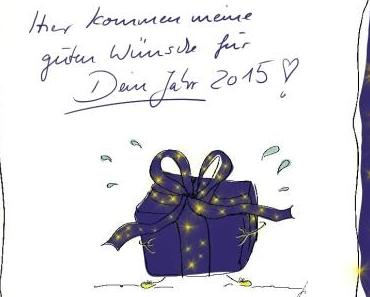 Hier kommen meine
guten Wünsche für
Dein Jahr 2015!